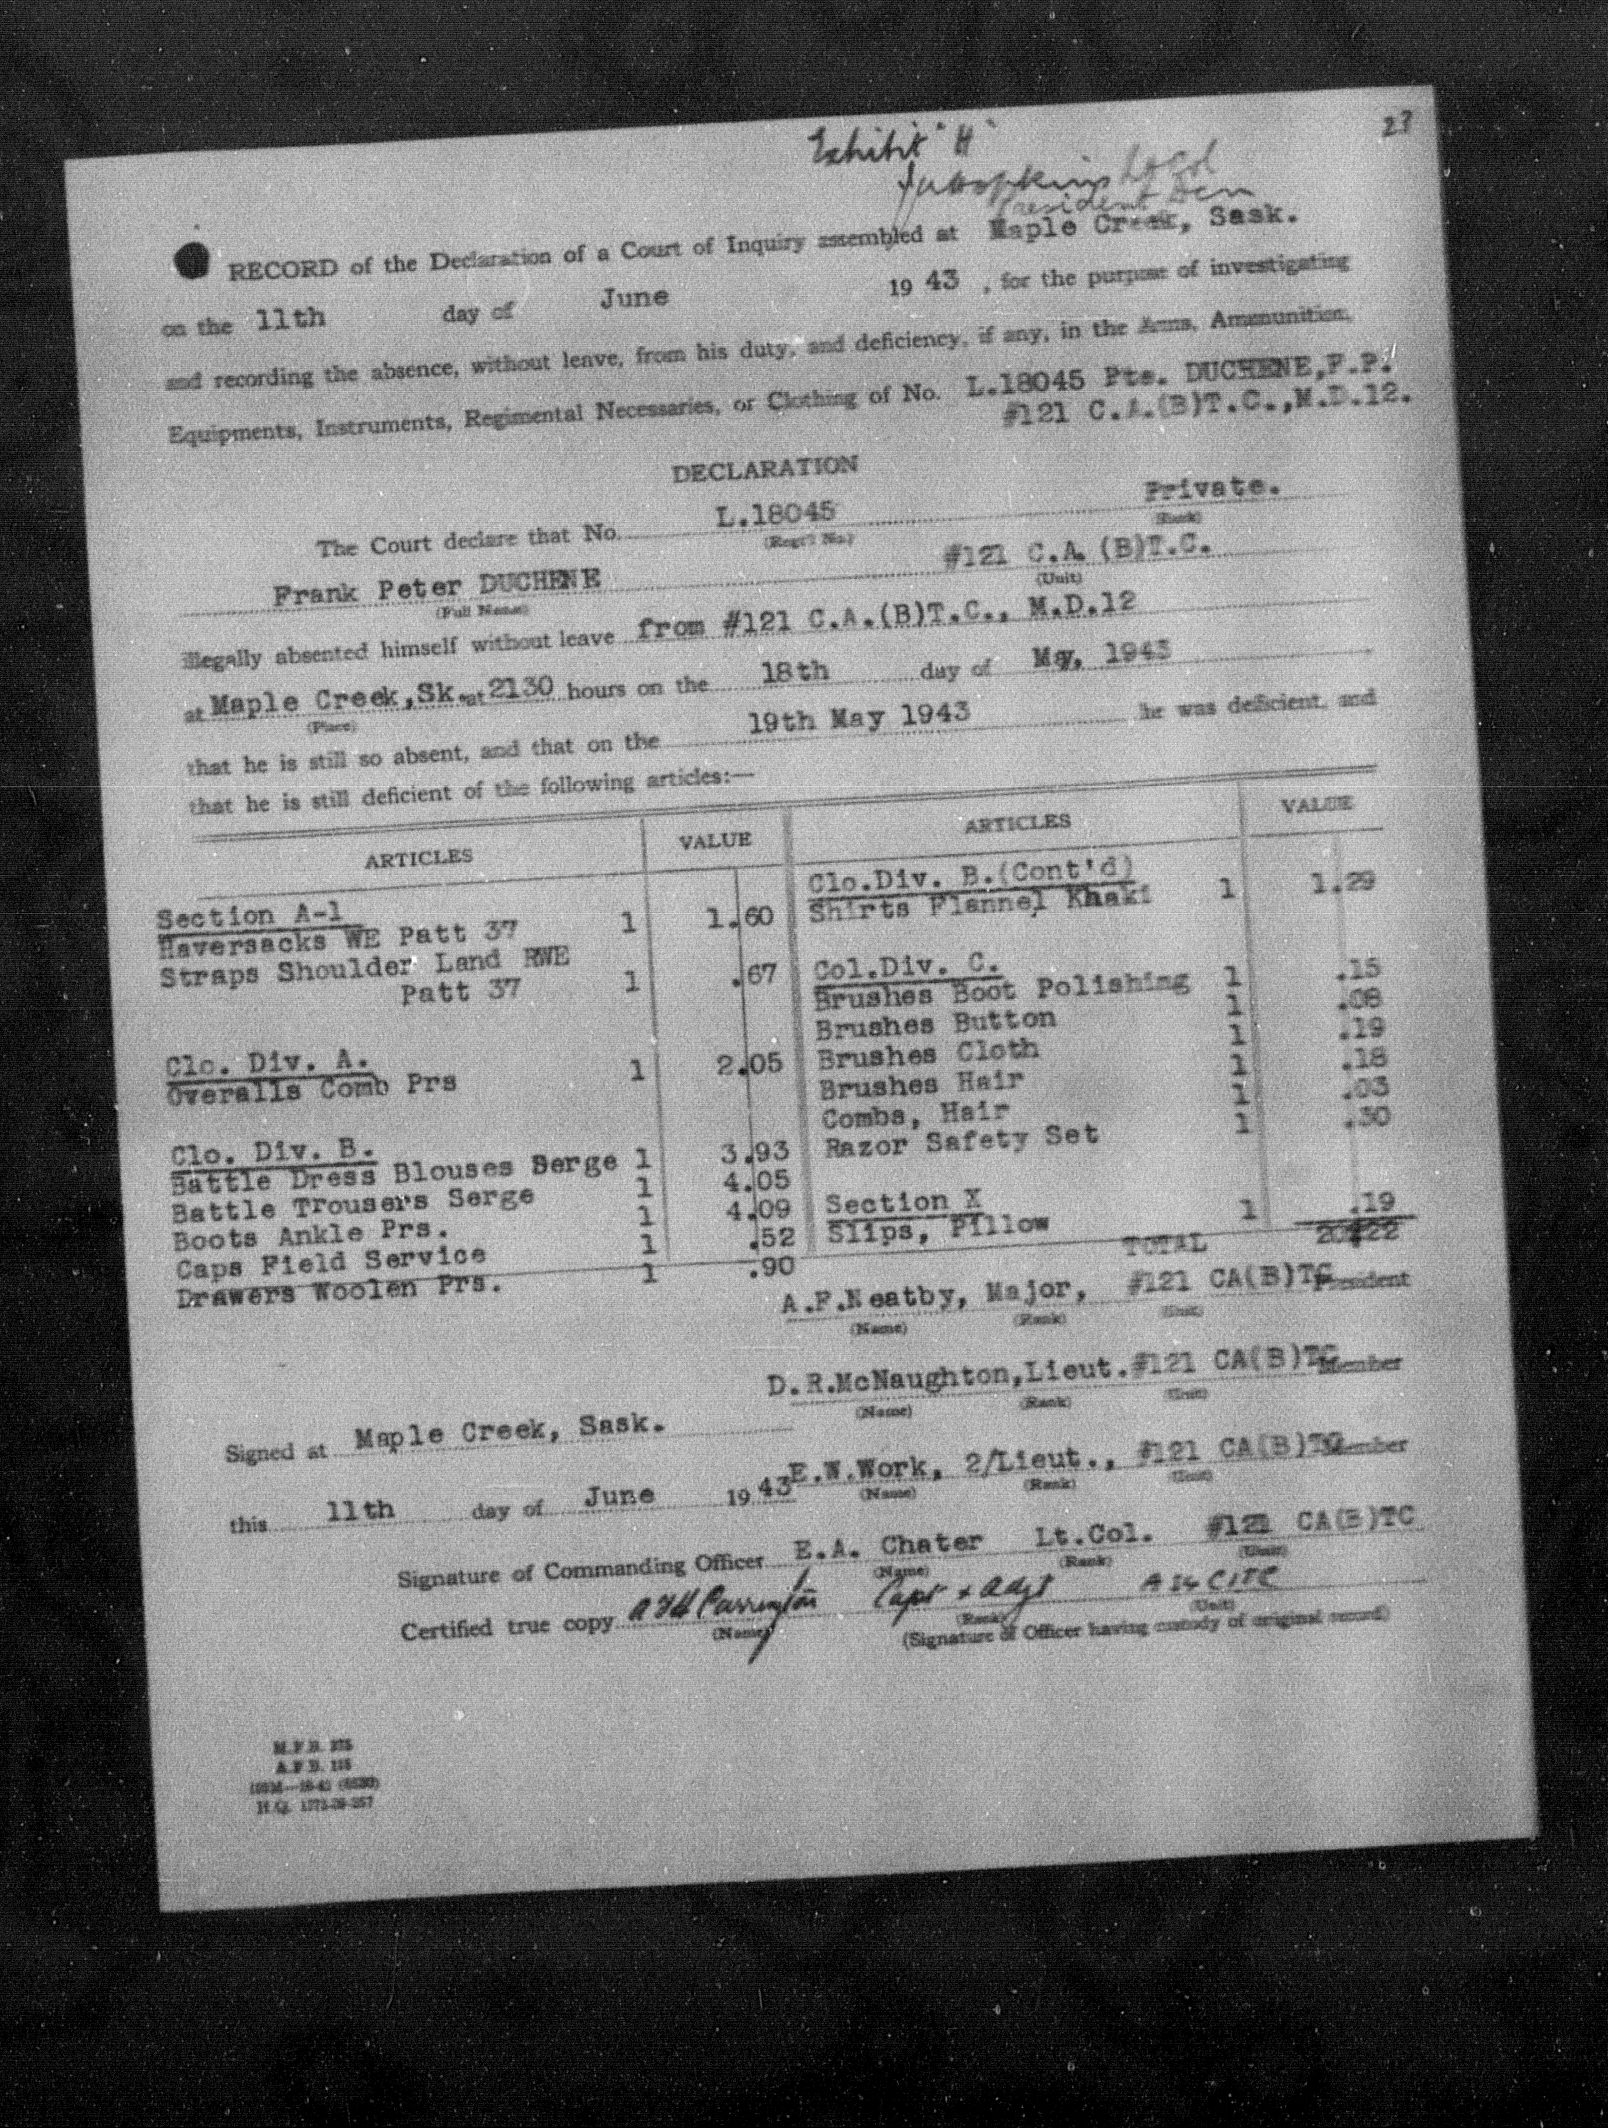 27
Exhibit "H"
President
RECORD of the Declaration of a Court of Inquiry assembled at Maple Creek, Sask.
on the 11th day of June 19 43 , for the purpose of investigating
and recording the absence, without leave, from his duty, and deficiency, if any, in the Arms, Ammunition,
Equipments, Instruments, Regimental Necessaries, or Clothing of No. L.18045 Pte. DUCHENE,F.P.
#121 C.A.(B)T.C.,M.D.12.
DECLARATION
The Court declare that No. L.18045 Private.
(Regt'l No.) (Rank)
Frank Peter DUCHENE #121 C.A. (B)T.C.
(Full Name) (Unit)
illegally absented himself without leave from #121 C.A.(B)T.C., M.D.12
at Maple Creek,Sk. at 2130 hours on the 18th day of May, 1943
(Place)
that he is still so absent, and that on the 19th May 1943 he was deficient, and
that he is still deficient of the following articles:—
ARTICLES VALUE ARTICLES VALUE
Section A-1
Haversacks WE Patt 37 1 1.60
Straps Shoulder Land RWE
Patt 37 1 .67
Clo. Div. A.
Overalls Comb Prs 1 2.05
Clo. Div. B.
Battle Dress Blouses Serge 1 3.93
Battle Trousers Serge 1 4.05
Boots Ankle Prs. 1 4.09
Caps Field Service 1 .52
Drawers Woolen Prs. 1 .90
Clo.Div. B.(Cont'd)
Shirts Flannel Khaki 1 1.29
Col.Div. C.
Brushes Boot Polishing 1 .15
Brushes Button 1 .08
Brushes Cloth 1 .19
Brushes Hair 1 .18
Combs, Hair 1 .03
Razor Safety Set 1 .30
Section X
Slips, Pillow 1 .19
TOTAL 20.22
A.F.Neatby, Major, #121 CA(B)TC President
(Name) (Rank) (Unit)
D.R.McNaughton,Lieut.#121 CA(B)TC Member
(Name) (Rank) (Unit)
Signed at Maple Creek, Sask.
E.W.Work, 2/Lieut., #121 CA(B)TC Member
(Name) (Rank) (Unit)
this 11th day of June 19 43
Signature of Commanding Officer E.A. Chater Lt.Col. #121 CA(B)TC
(Name) (Rank) (Unit)
Certified true copy Capt & Adjt A14 CITC
(Name) (Rank) (Unit)
(Signature of Officer having custody of original record)
M.F.B. 375
A.F.B. 115